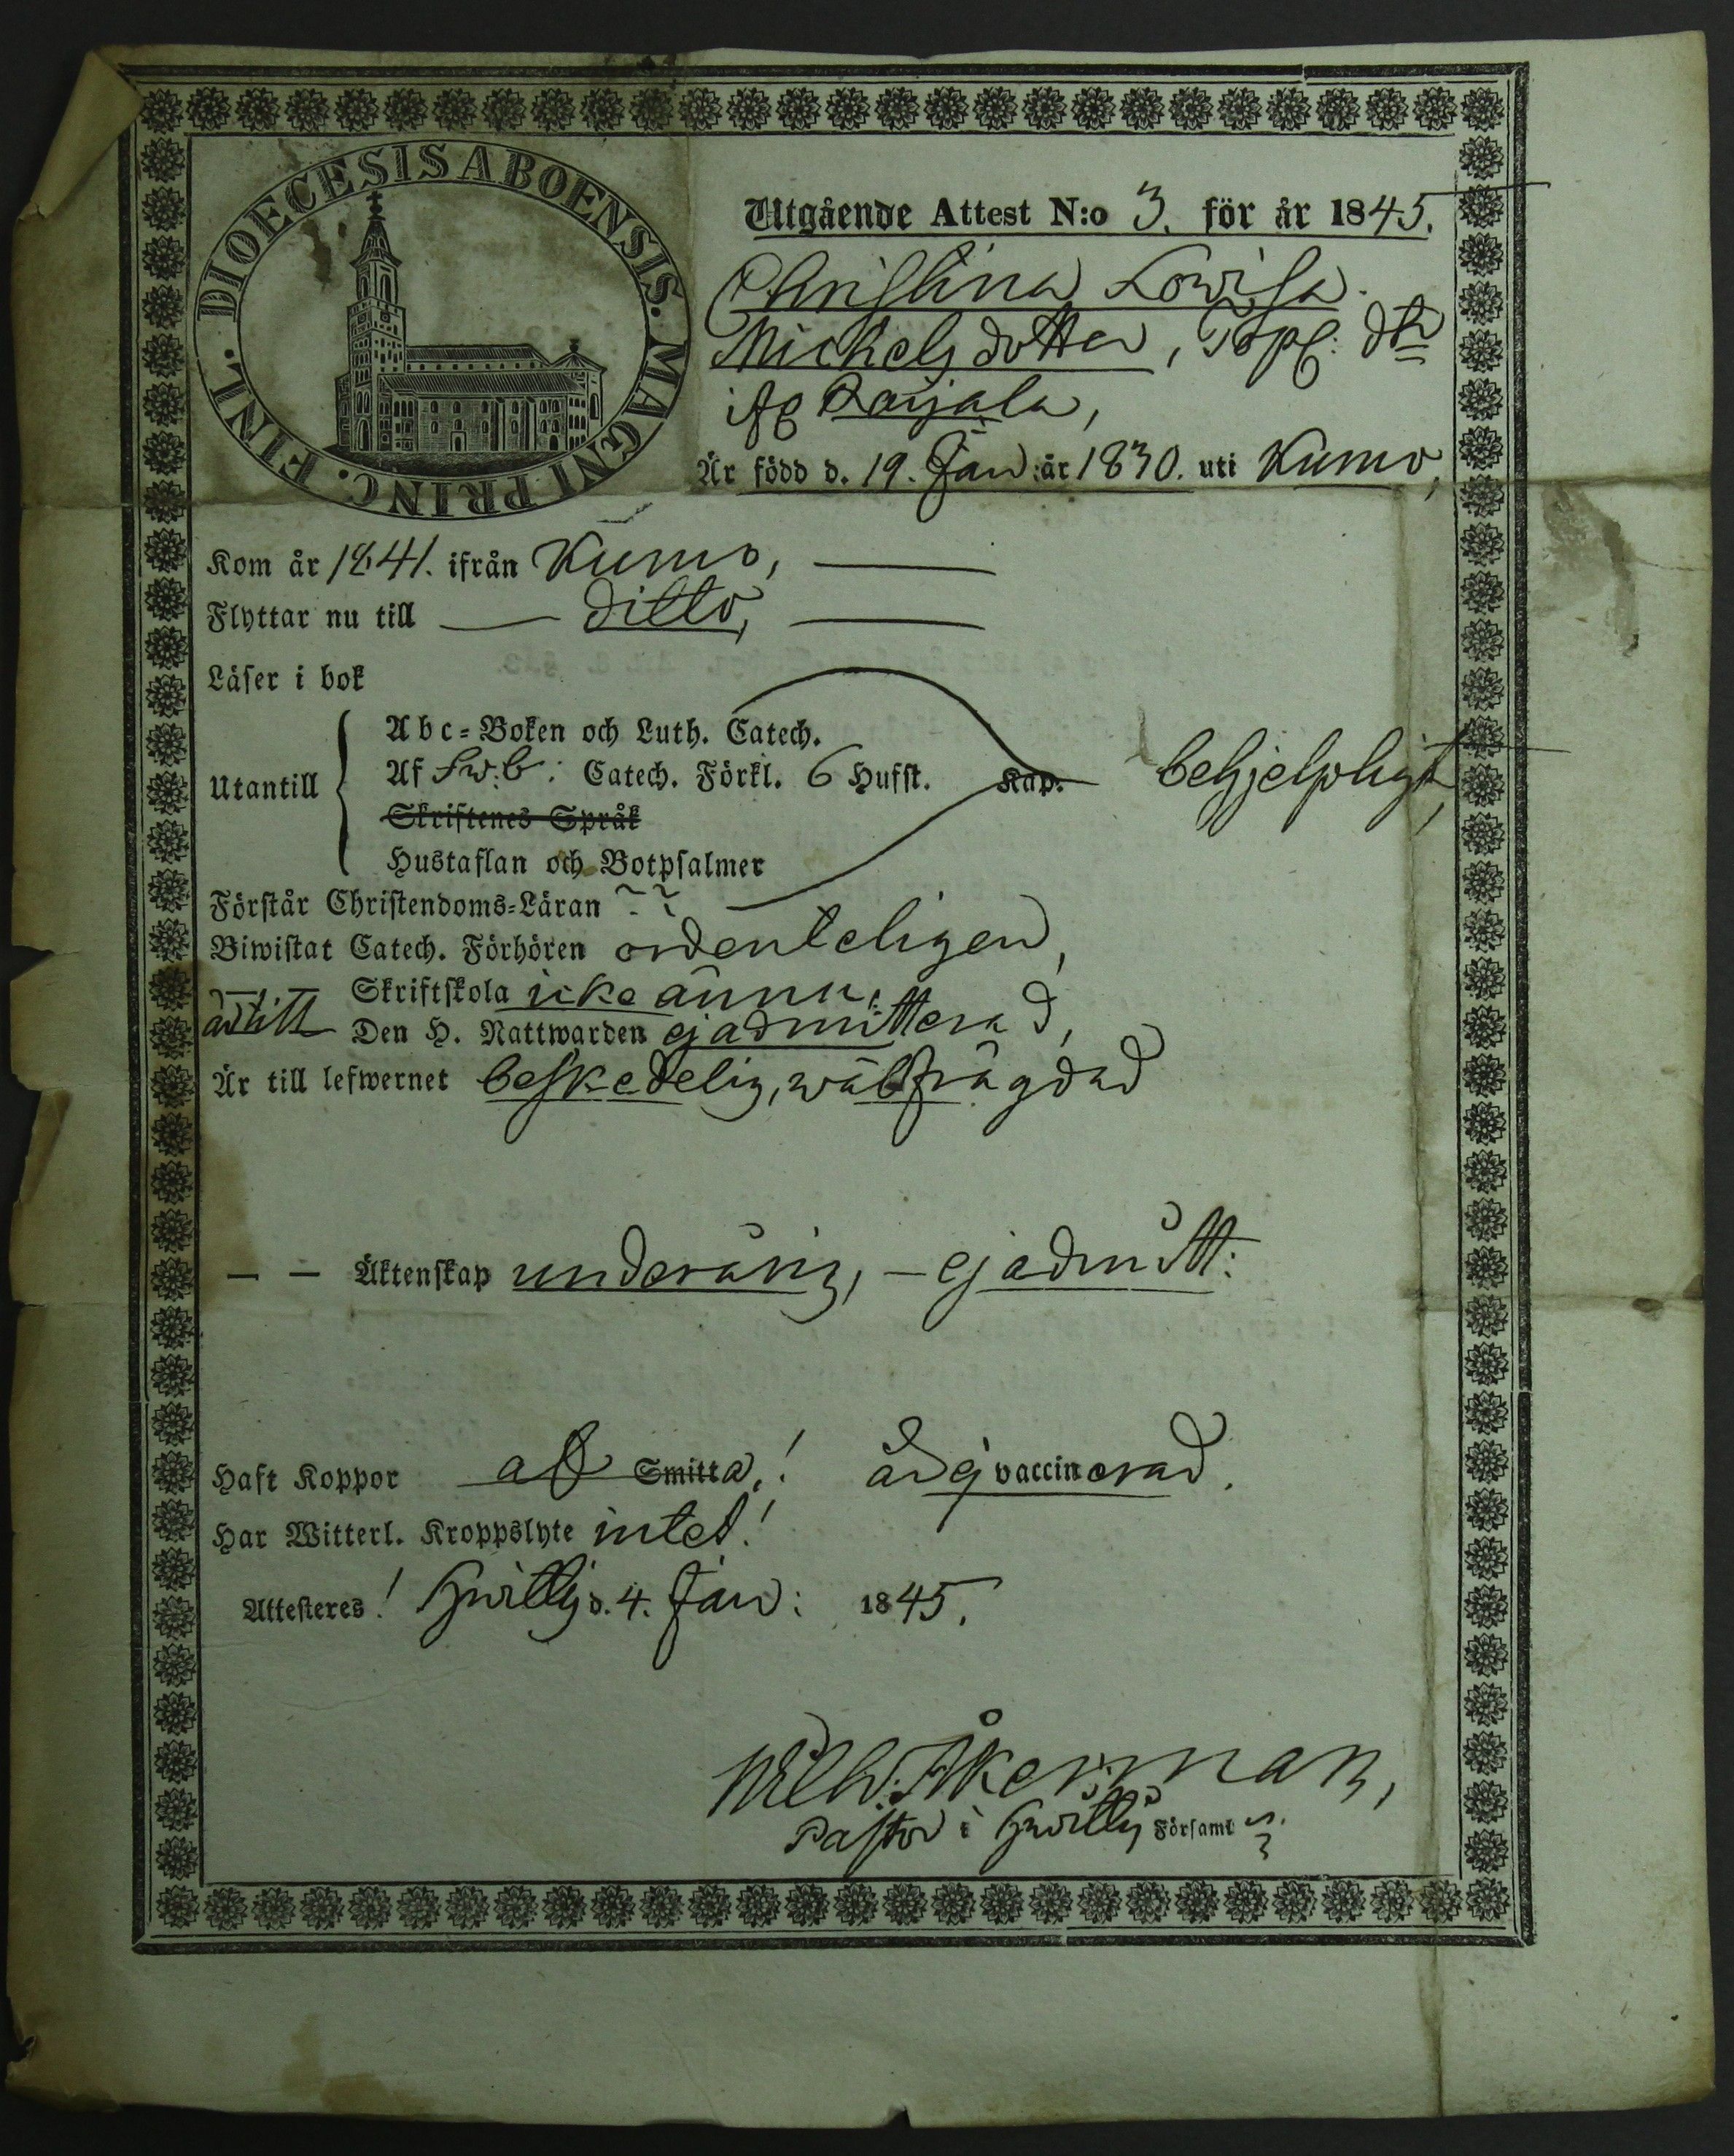 DIOECESIS ABOENSIS. MAGNI PRINC. FINL.
Utgående Attest N:o 3. för år 1845.
Christina Lowisa
Mickelsdotter, Torp: dtr
ifr Karjala,
Är född d. 19. Jan: år 1830. uti Kumo,
Kom år 1841. ifrån Kumo,
Flyttar nu till ditto,
Läser i bok
Abc-Boken och Luth. Catech.
Utantill Af Sw:b: Catech. Förkl. 6 Hufst. Kap. behjelpligt,
Skriftenes Språk
Hustaflan och Botpsalmer
Förstår Christendoms-Läran
Biwistat Catech. Förhören ordenteligen,
Skriftskola icke ännu,
Den H. Nattwarden ej admitterad,
Är till lefwernet beskedelig, wälfrägdad
Äktenskap underårig, - ej admitt:
Haft Koppor af Smitta! ej vaccinerad.
Har Witterl. Kroppslyte intet!
Attesteres! Hwittis d. 4. Jan: 1845.
Wilh: Åkerman,
Pastor i Hwittis Församl